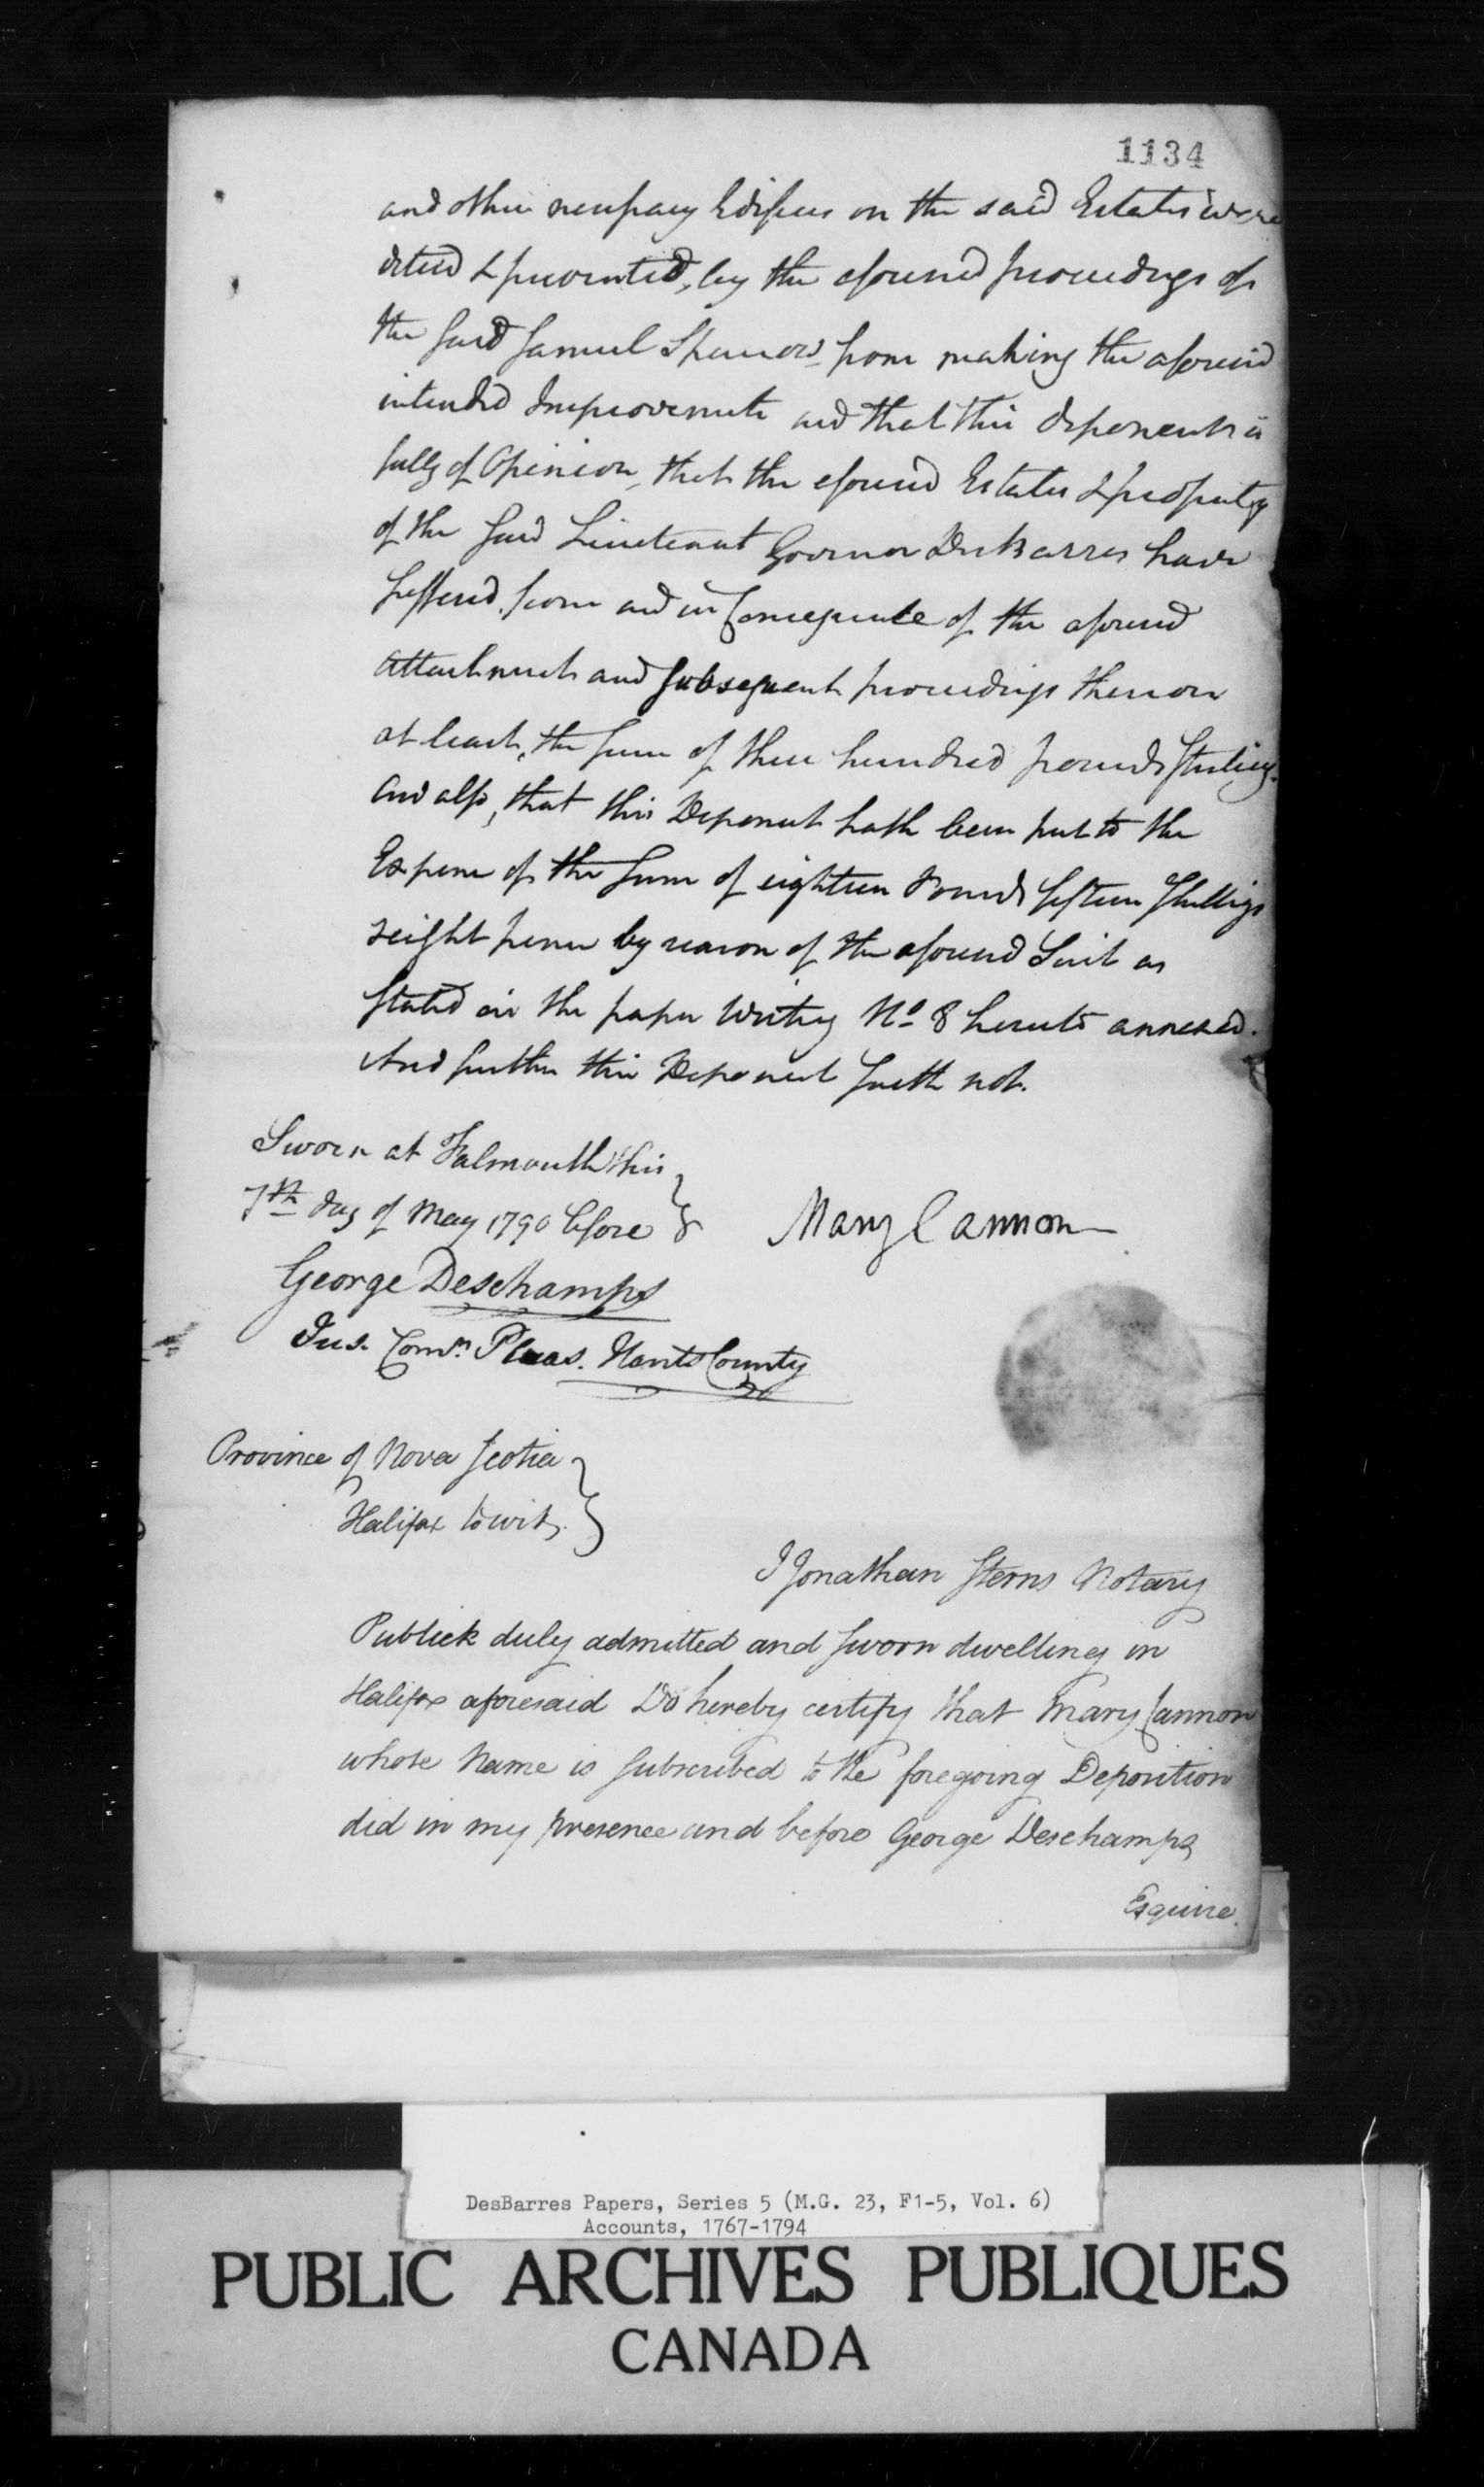 1134
and other necessary Edifices on the said Estates were
& prevented, by the aforesaid proceedings of
the said Samuel Sparrow from making the aforesaid
intended Improvements and that this deponent is
fully of Opinion, that the aforesaid Estates & property
of the said Lieutenant Governor DesBarres have
suffered from and in Consequence of the aforesaid
Attachment and subsequent proceedings thereon
at least, the sum of three hundred pounds sterling.
And also, that this Deponent hath been put to the
Expence of the sum of eighteen Pounds fifteen shillings
& eight pence by reason of the aforesaid Suit as
stated in the paper writing No 8 hereto annexed.
And further this Deponent saith not.
Sworn at Falmouth this
7th day of May 1790 before
Mary Cannon
George Deschamps
Jus. Comn. Pleas. Hants County
Province of Nova Scotia
Halifax to wit.
I Jonathan Sterns Notary
Publick duly admitted and sworn dwelling in
Halifax aforesaid Do hereby certify that Mary Cannon
whose Name is subscribed to the foregoing Deposition
did in my presence and before George Deschamps
Esquire.
DesBarres Papers, Series 5 (M.G. 23, F1-5, Vol. 6)
Accounts, 1767-1794
PUBLIC ARCHIVES PUBLIQUES
CANADA